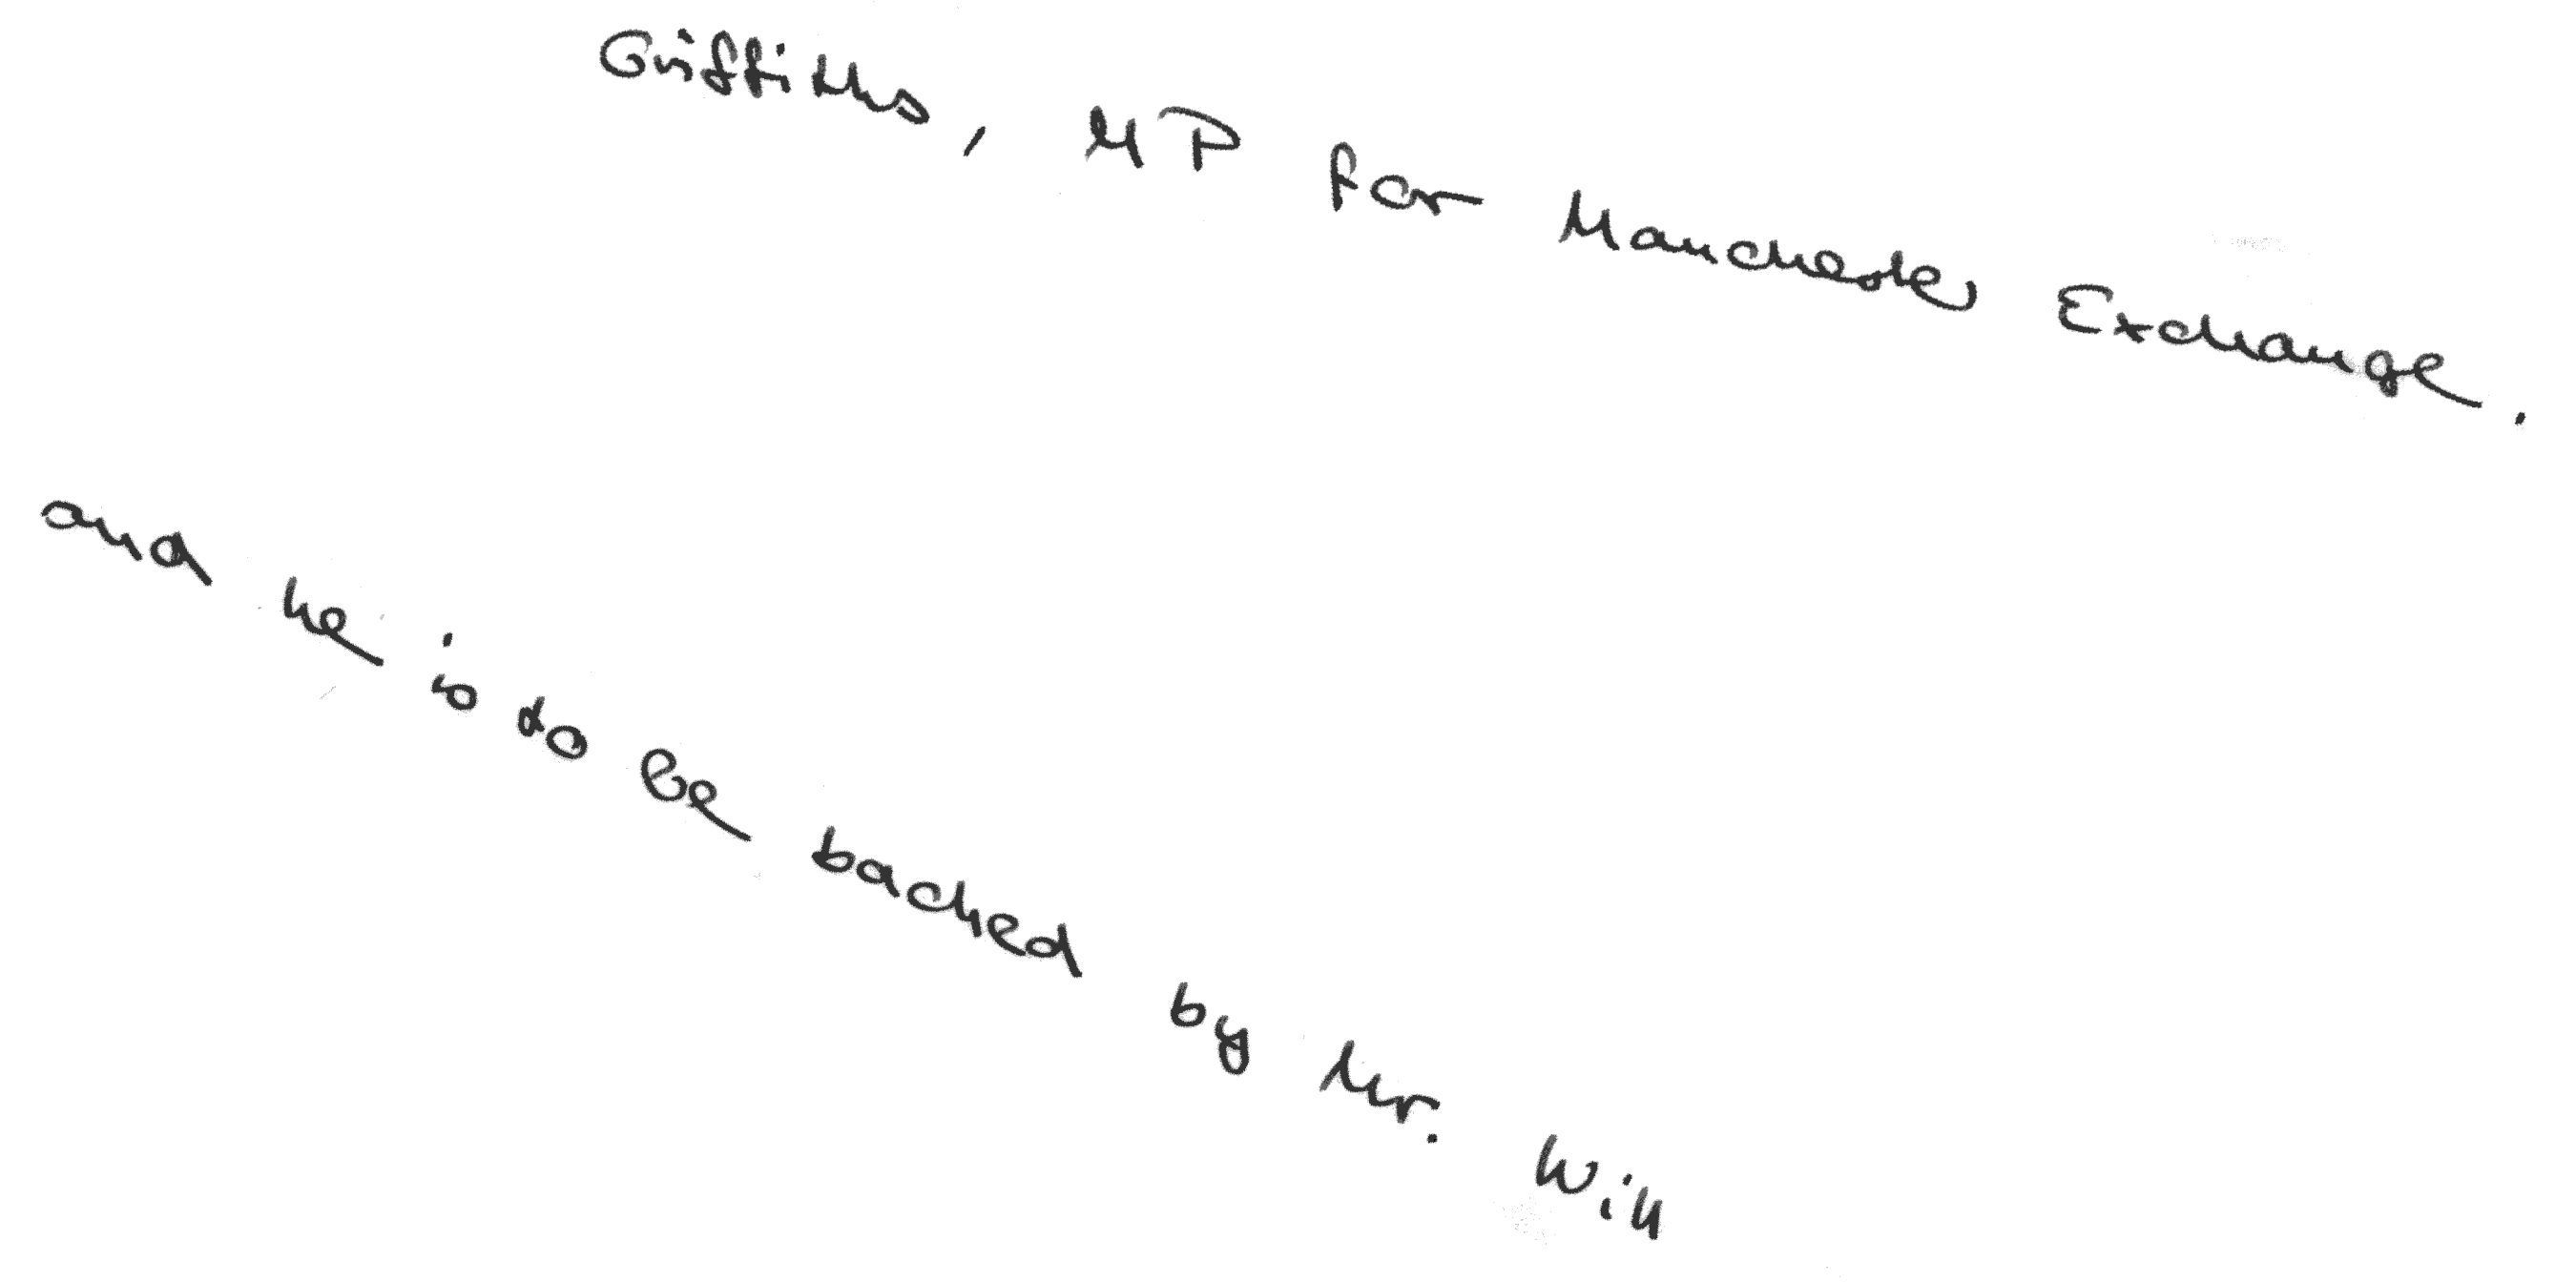 Griffiths, MP for Manchester Exchange.
and he is to be backed by Mr. Will